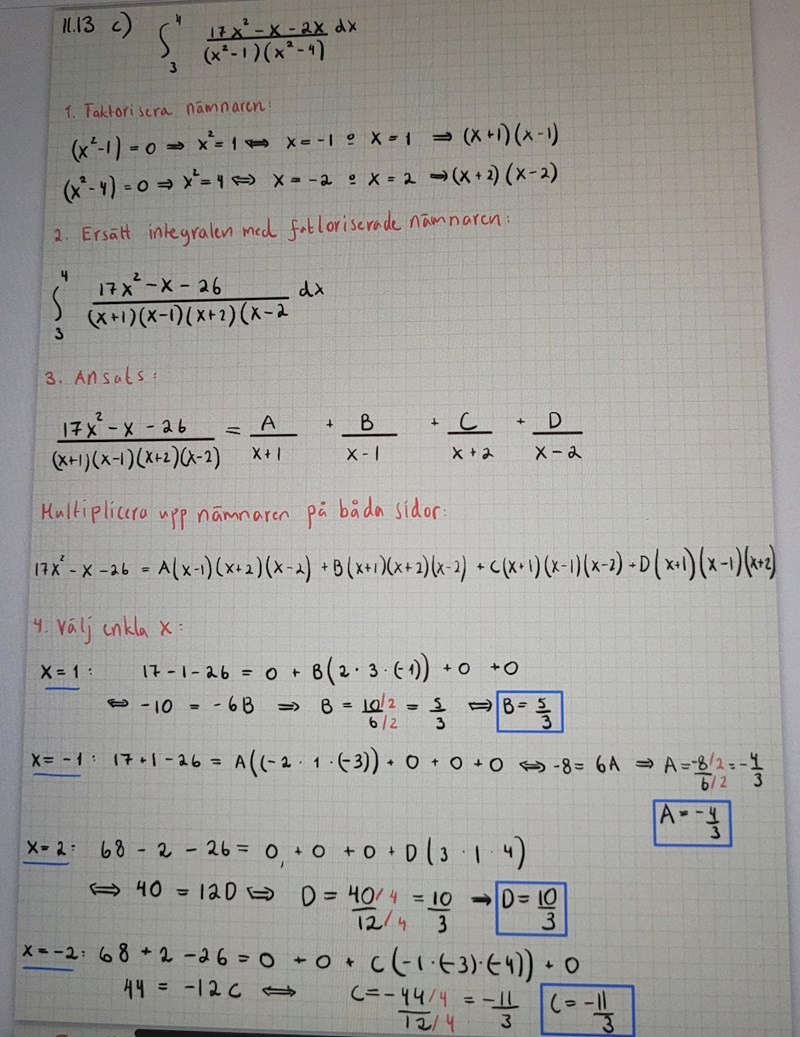 11.13 c) ∫₃⁴ (17x² - x - 2x)/((x² - 1)(x² - 4)) dx
1. Faktorisera nämnaren:
(x² - 1) = 0 ⇒ x² = 1 ⇔ x = -1 o x = 1 ⇒ (x+1)(x-1)
(x² - 4) = 0 ⇒ x² = 4 ⇔ x = -2 o x = 2 ⇒ (x+2)(x-2)
2. Ersätt integralen med faktoriserade nämnaren:
∫₃⁴ (17x² - x - 26)/((x+1)(x-1)(x+2)(x-2 dx
3. Ansats:
(17x² - x - 26)/((x+1)(x-1)(x+2)(x-2)) = A/(x+1) + B/(x-1) + C/(x+2) + D/(x-2)
Multiplicera upp nämnaren på båda sidor:
17x² - x - 26 = A(x-1)(x+2)(x-2) + B(x+1)(x+2)(x-2) + C(x+1)(x-1)(x-2) + D(x+1)(x-1)(x+2)
4. Välj enkla x:
x = 1: 17 - 1 - 26 = 0 + B(2 · 3 · (-1)) + 0 + 0
⇔ -10 = -6B ⇒ B = (10/2)/(6/2) = 5/3 ⇔ B = 5/3
x = -1: 17 + 1 - 26 = A((-2 · 1 · (-3)) + 0 + 0 + 0 ⇔ -8 = 6A ⇒ A = (-8/2)/(6/2) = -4/3
A = -4/3
x = 2: 68 - 2 - 26 = 0 + 0 + 0 + D(3 · 1 · 4)
⇔ 40 = 12D ⇔ D = (40/4)/(12/4) = 10/3 ⇒ D = 10/3
x = -2: 68 + 2 - 26 = 0 + 0 + C(-1 · (-3) · (-4)) + 0
44 = -12C ⇔ C = -(44/4)/(12/4) = -11/3 C = -11/3